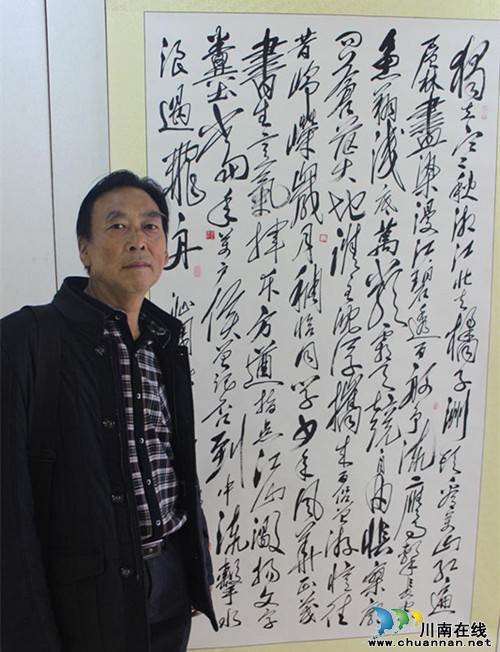 獨立寒秋湘江北去橘子洲頭看萬山紅遍
層林盡染漫江碧透百舸爭流鷹擊長空
魚翔淺底萬類霜天競自由悵寥廓
問蒼茫大地誰主沉浮攜來百侶曾游憶往
昔崢嶸歲月稠恰同學少年風華正茂
書生意氣揮斥方遒指点江山激揚文字
糞土當年萬户侯曾記否到中流擊水
浪遏飛舟
川南在线
www.chuannan.net